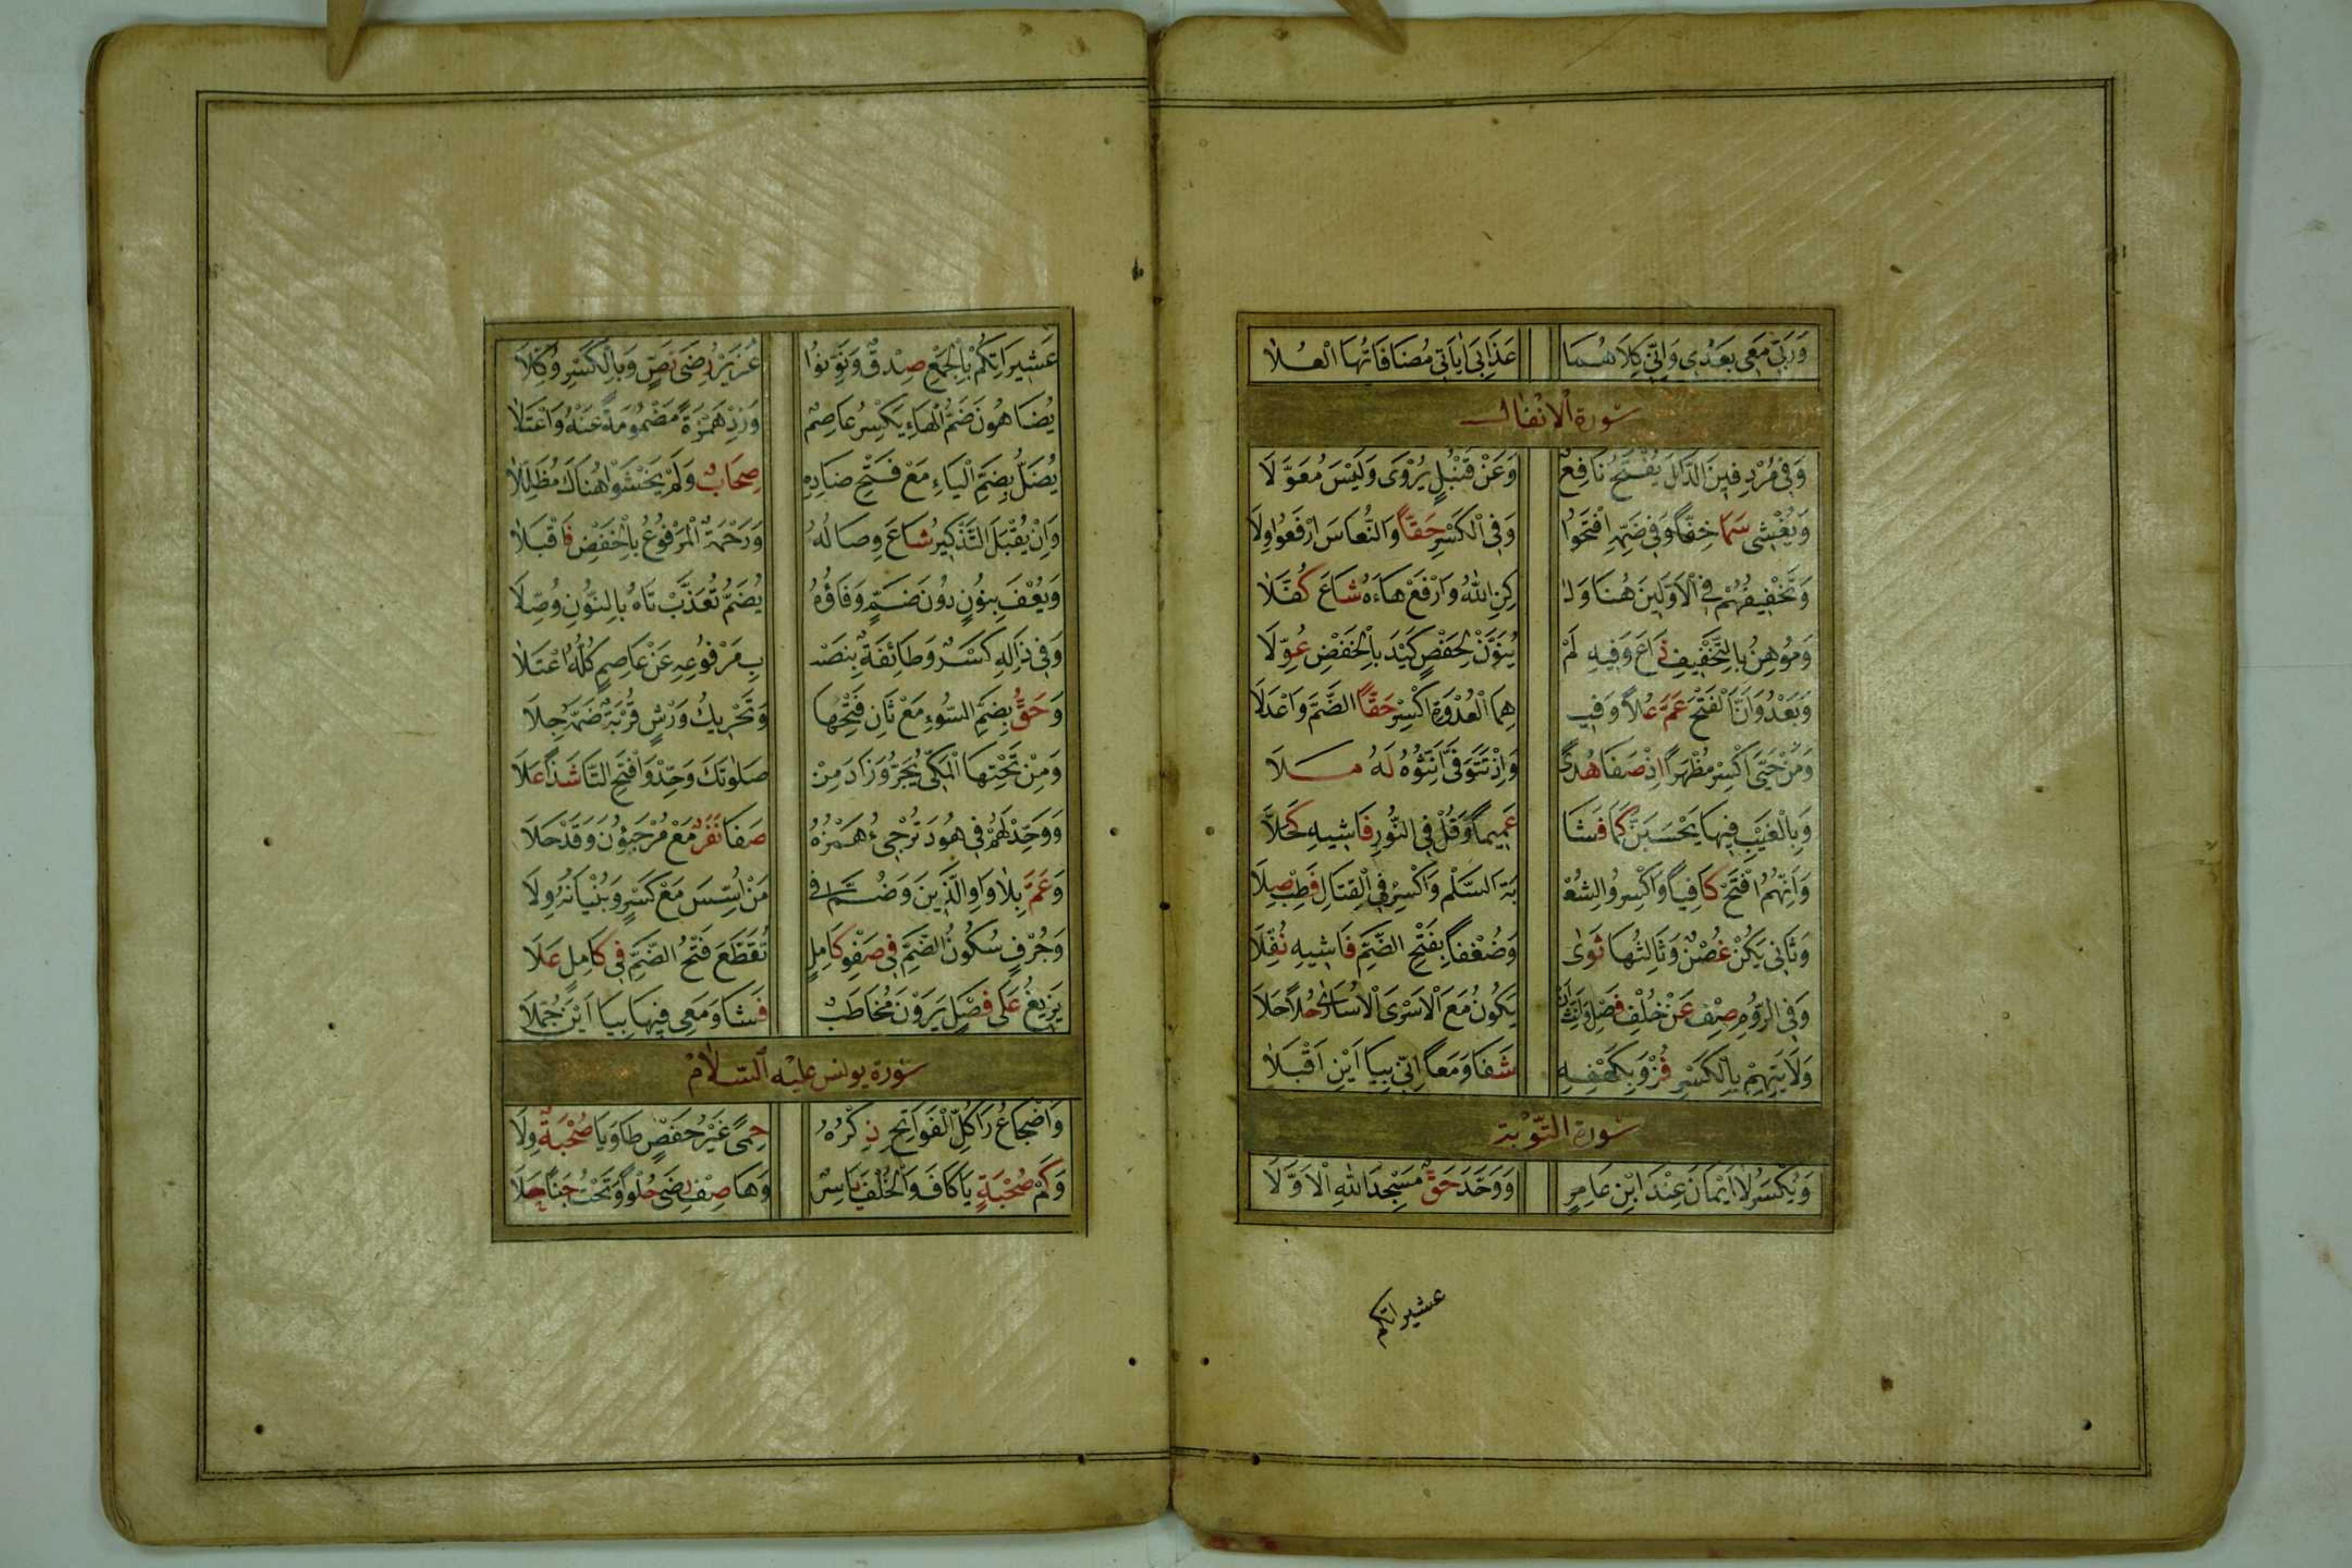 وَرَبِّي مَعِي بَعْدِي وَاِنِّي كِلَاهُمَا عَذَابِيَ اٰيَاتِي مُضَافَاتُهَا الْعُلَا
سورة الانفال
وَفِي مُرْدِفِينَ الدَّالَ يَفْتَحُ نَافِعٌ وَعَنْ قُنْبُلٍ يُرْوَى وَلَيْسَ مُعَوَّلَا
وَيُغْشِي سَمَا خِفًّا وَفِي ضَمِّهِ افْتَحُوا وَفِي الْكَسْرِ حَقًّا وَالنُّعَاسَ ارْفَعُوا وِلَا
وَتَخْفِيفُهُمْ فِي الْاَوَّلَيْنَ هُنَا وَلٰ كِنِ اللّٰهُ وَارْفَعْ هَاءَهُ شَاعَ كُفَّلَا
وَمُوهِنُ بِالتَّخْفِيفِ ذَاعَ وَفِيهِ لَمْ يُنَوَّنْ لِحَفْصٍ كَيْدَ بِالْخَفْضِ عُوِّلَا
وَبَعْدُ وَاَنَّ الْفَتْحُ عَمَّ عُلًا وَفِي هِمَا الْعُدْوَةِ اكْسِرْ حَقًّا الضَّمَّ وَاعْدِلَا
وَمَنْ حَيِيَ اكْسِرْ مُظْهِرًا اِذْ صَفَا هُدًى وَاِذْ تَتَوَفَّى اَنِّثُوهُ لَهُ مُلَا
وَبِالْغَيْبِ فِيهَا يَحْسَبَنَّ كَمَا فَشَا عَمِيمًا وَقُلْ فِي النُّورِ فَاشِيهِ كَحَّلَا
وَاَنَّهُمُ افْتَحْ كَافِيًا وَاكْسِرُوا لِشُعْ بَةَ السَّلْمِ وَاكْسِرْ فِي الْقِتَالِ فَطِبْ صِلَا
وَثَانِي يَكُنْ غُصْنٌ وَثَالِثُهَا ثَوٰى وَضُعْفًا بِفَتْحِ الضَّمِّ فَاشِيهِ نُفِّلَا
وَفِي الرُّومِ صِفْ عَنْ خُلْفِ فَصْلٍ وَاَنِّثْ اَنْ يَكُونَ مَعَ الْاَسْرَى الْاُسَارَى حُلًا حَلَا
وَلَايَتِهِمْ بِالْكَسْرِ فُزْ وَبِكَهْفِهِ شَفَا وَمَعًا اِنِّي بِيَا اَيْنِ اَقْبَلَا
سورة التوبة
وَيُكْسَرُ لَا اَيْمَانَ عِنْدَ ابْنِ عَامِرٍ وَوَحَّدَ حَقٌّ مَسْجِدَ اللّٰهِ الْاَوَّلَا
عشيراتكم
عَشِيرَاتِكُمْ بِالْجَمْعِ صِدْقٌ وَنَوِّنُوا عُزَيْرٌ رِضَى نَصٍّ وَبِالْكَسْرِ وُكِّلَا
يُضَاهُونَ ضَمَّ الْهَاءِ يَكْسِرُ عَاصِمٌ وَزِدْ هَمْزَةً مَضْمُومَةً عَنْهُ وَاعْتَلَا
يُضَلُّ بِضَمِّ الْيَاءِ مَعْ فَتْحِ ضَادِهِ صِحَابٌ وَلَمْ يَخْشَوْا هُنَاكَ مُظَلِّلَا
وَاِنْ يُقْبَلَ التَّذْكِيرُ شَاعَ وِصَالُهُ وَرَحْمَةٌ الْمَرْفُوعُ بِالْخَفْضِ فَاقْبَلَا
وَيُعْفَ بِنُونٍ دُونَ ضَمٍّ وَفَاؤُهُ يُضَمُّ تُعَذَّبْ تَاهُ بِالنُّونِ وُصِّلَا
وَفِي ذَالِهِ كَسْرٌ وَطَائِفَةٌ بِنَصْ بِ مَرْفُوعِهِ عَنْ عَاصِمٍ كُلُّهُ اعْتَلَا
وَحَقٌّ بِضَمِّ السُّوءِ مَعْ ثَانِ فَتْحِهَا وَتَحْرِيكُ وَرْشٍ قُرْبَةٌ ضَمُّهُ جَلَا
وَمِنْ تَحْتِهَا الْمَكِّي يَجُرُّ وَزَادَ مِنْ صَلٰوتَكَ وَحِّدْ وَافْتَحِ التَّا شَذًا عَلَا
وَوَحِّدْ لَهُمْ فِي هُودَ تُرْجِيءُ هَمْزُهُ صَفَا نَفَرٌ مَعْ مُرْجَؤُنَ وَقَدْ حَلَا
وَعَمَّ بِلَا وَاوِ الَّذِينَ وَضُمَّ فِي مَنْ اُسِّسَ مَعْ كَسْرٍ وَبُنْيَانُهُ وِلَا
وَجُرْفٍ سُكُونُ الضَّمِّ فِي صَفْوِ كَامِلٍ تُقَطَّعَ فَتْحُ الضَّمِّ فِي كَامِلٍ عَلَا
يَزِيغُ عَلَى فَصْلٍ يَرَوْنَ مُخَاطَبٌ فَشَا وَمَعِي فِيهَا بِيَا اَيْنِ جُمِّلَا
سورة يونس عليه السلام
وَاضْجَاعُ رَا كُلِّ الْفَوَاتِحِ ذِكْرُهُ حِمًى غَيْرُ حَفْصٍ طَاوَيَا صُحْبَةٌ وِلَا
وَكَمْ صُحْبَةٍ يَا كَافَ وَالْخُلْفُ يَاسِرٌ وَهَا صِفْ رِضًى حُلْوًا وَتَحْتَ جَنًا حَلَا